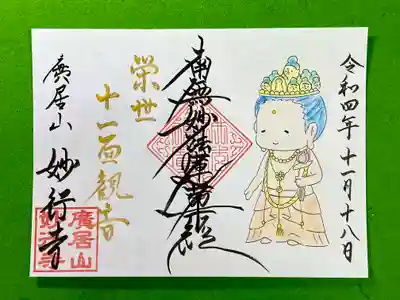 令和四年十一月十八日
南無妙法蓮華経
栄世
十一面観音
廣居山 妙行寺
廣居山
妙行寺